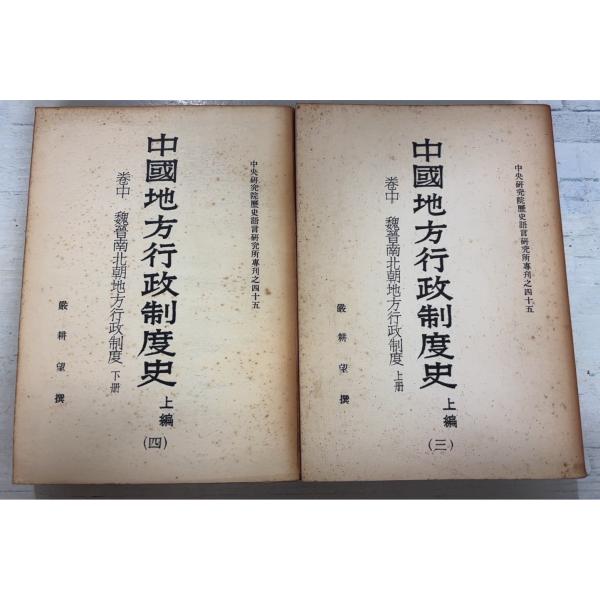 中央研究院歷史語言研究所專刊之四十五
中國地方行政制度史 上編
(三)
卷中 魏晉南北朝地方行政制度 上册
嚴耕望撰
中央研究院歷史語言研究所專刊之四十五
中國地方行政制度史 上編
(四)
卷中 魏晉南北朝地方行政制度 下册
嚴耕望撰